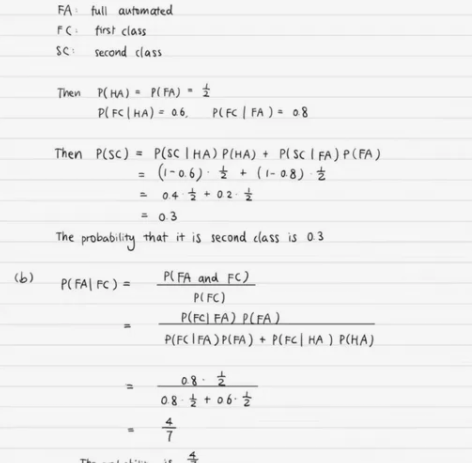 FA: full automated
FC: first class
SC: second class
Then P(HA) = P(FA) = 1/2
P(FC | HA) = 0.6, P(FC | FA) = 0.8
Then P(SC) = P(SC | HA) P(HA) + P(SC | FA) P(FA)
= (1-0.6) · 1/2 + (1-0.8) · 1/2
= 0.4 · 1/2 + 0.2 · 1/2
= 0.3
The probability that it is second class is 0.3
(b) P(FA | FC) = P(FA and FC) / P(FC)
= P(FC | FA) P(FA) / P(FC | FA) P(FA) + P(FC | HA) P(HA)
= 0.8 · 1/2 / 0.8 · 1/2 + 0.6 · 1/2
= 4/7
The probability is 4/